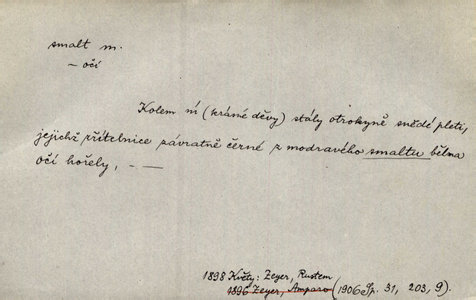 smalt m.
– očí
Kolem ní (krásné děvy) stály otrokyně snědé pleti,
jejichž zřítelnice závratně černé z modravého smaltu bělma
očí hořely, – —
1898 Květy: Zeyer, Rustem
1896 Zeyer, Amparo (1906 Sp. 31, 203, 9).